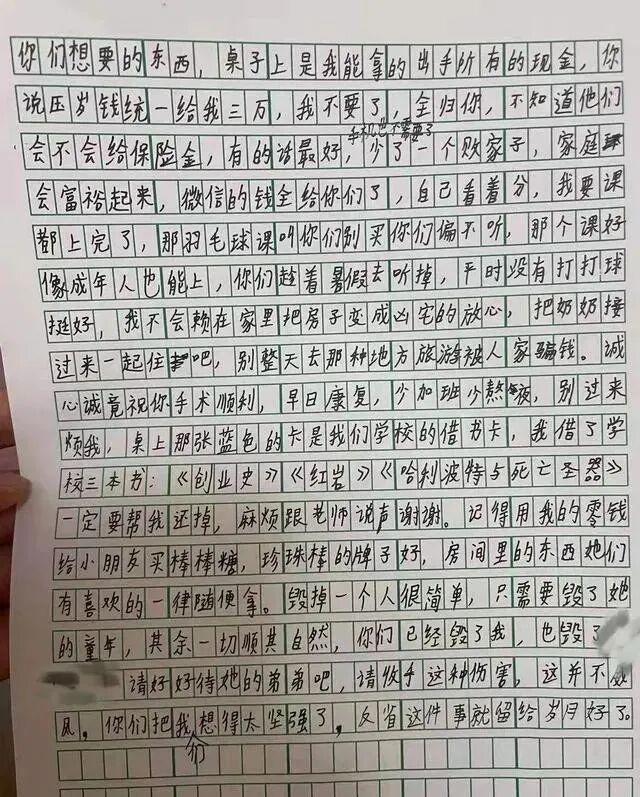 你们想要的东西，桌子上是我能拿的出手所有的现金，你
说压岁钱统一给我三万，我不要了，全归你，不知道他们
手机也不需要了
会不会给保险金，有的话最好，少了一个败家子，家庭
会富裕起来，微信的钱全给你们了，自己看着分，我要课
都上完了，那羽毛球课叫你们别买你们偏不听，那个课好
像成年人也能上，你们趁着暑假去听掉，平时没有打打球
挺好，我不会赖在家里把房子变成凶宅的放心，把奶奶接
过来一起住吧，别整天去那种地方旅游被人家骗钱。诚
心诚竟祝你手术顺利，早日康复，少加班少熬夜，别过来
烦我，桌上那张蓝色的卡是我们学校的借书卡，我借了学
校三本书：《创业史》《红岩》《哈利波特与死亡圣器》
一定要帮我还掉，麻烦跟老师说声谢谢。记得用我的零钱
给小朋友买棒棒糖，珍珠棒的牌子好，房间里的东西她们
有喜欢的一律随便拿。毁掉一个人很简单，只需要毁了她
的童年，其余一切顺其自然，你们已经毁了我，也毁了
请好好待她的弟弟吧，请收手这种伤害，这并不威
风，你们把我们想得太坚强了，反省这件事就留给岁月好了。